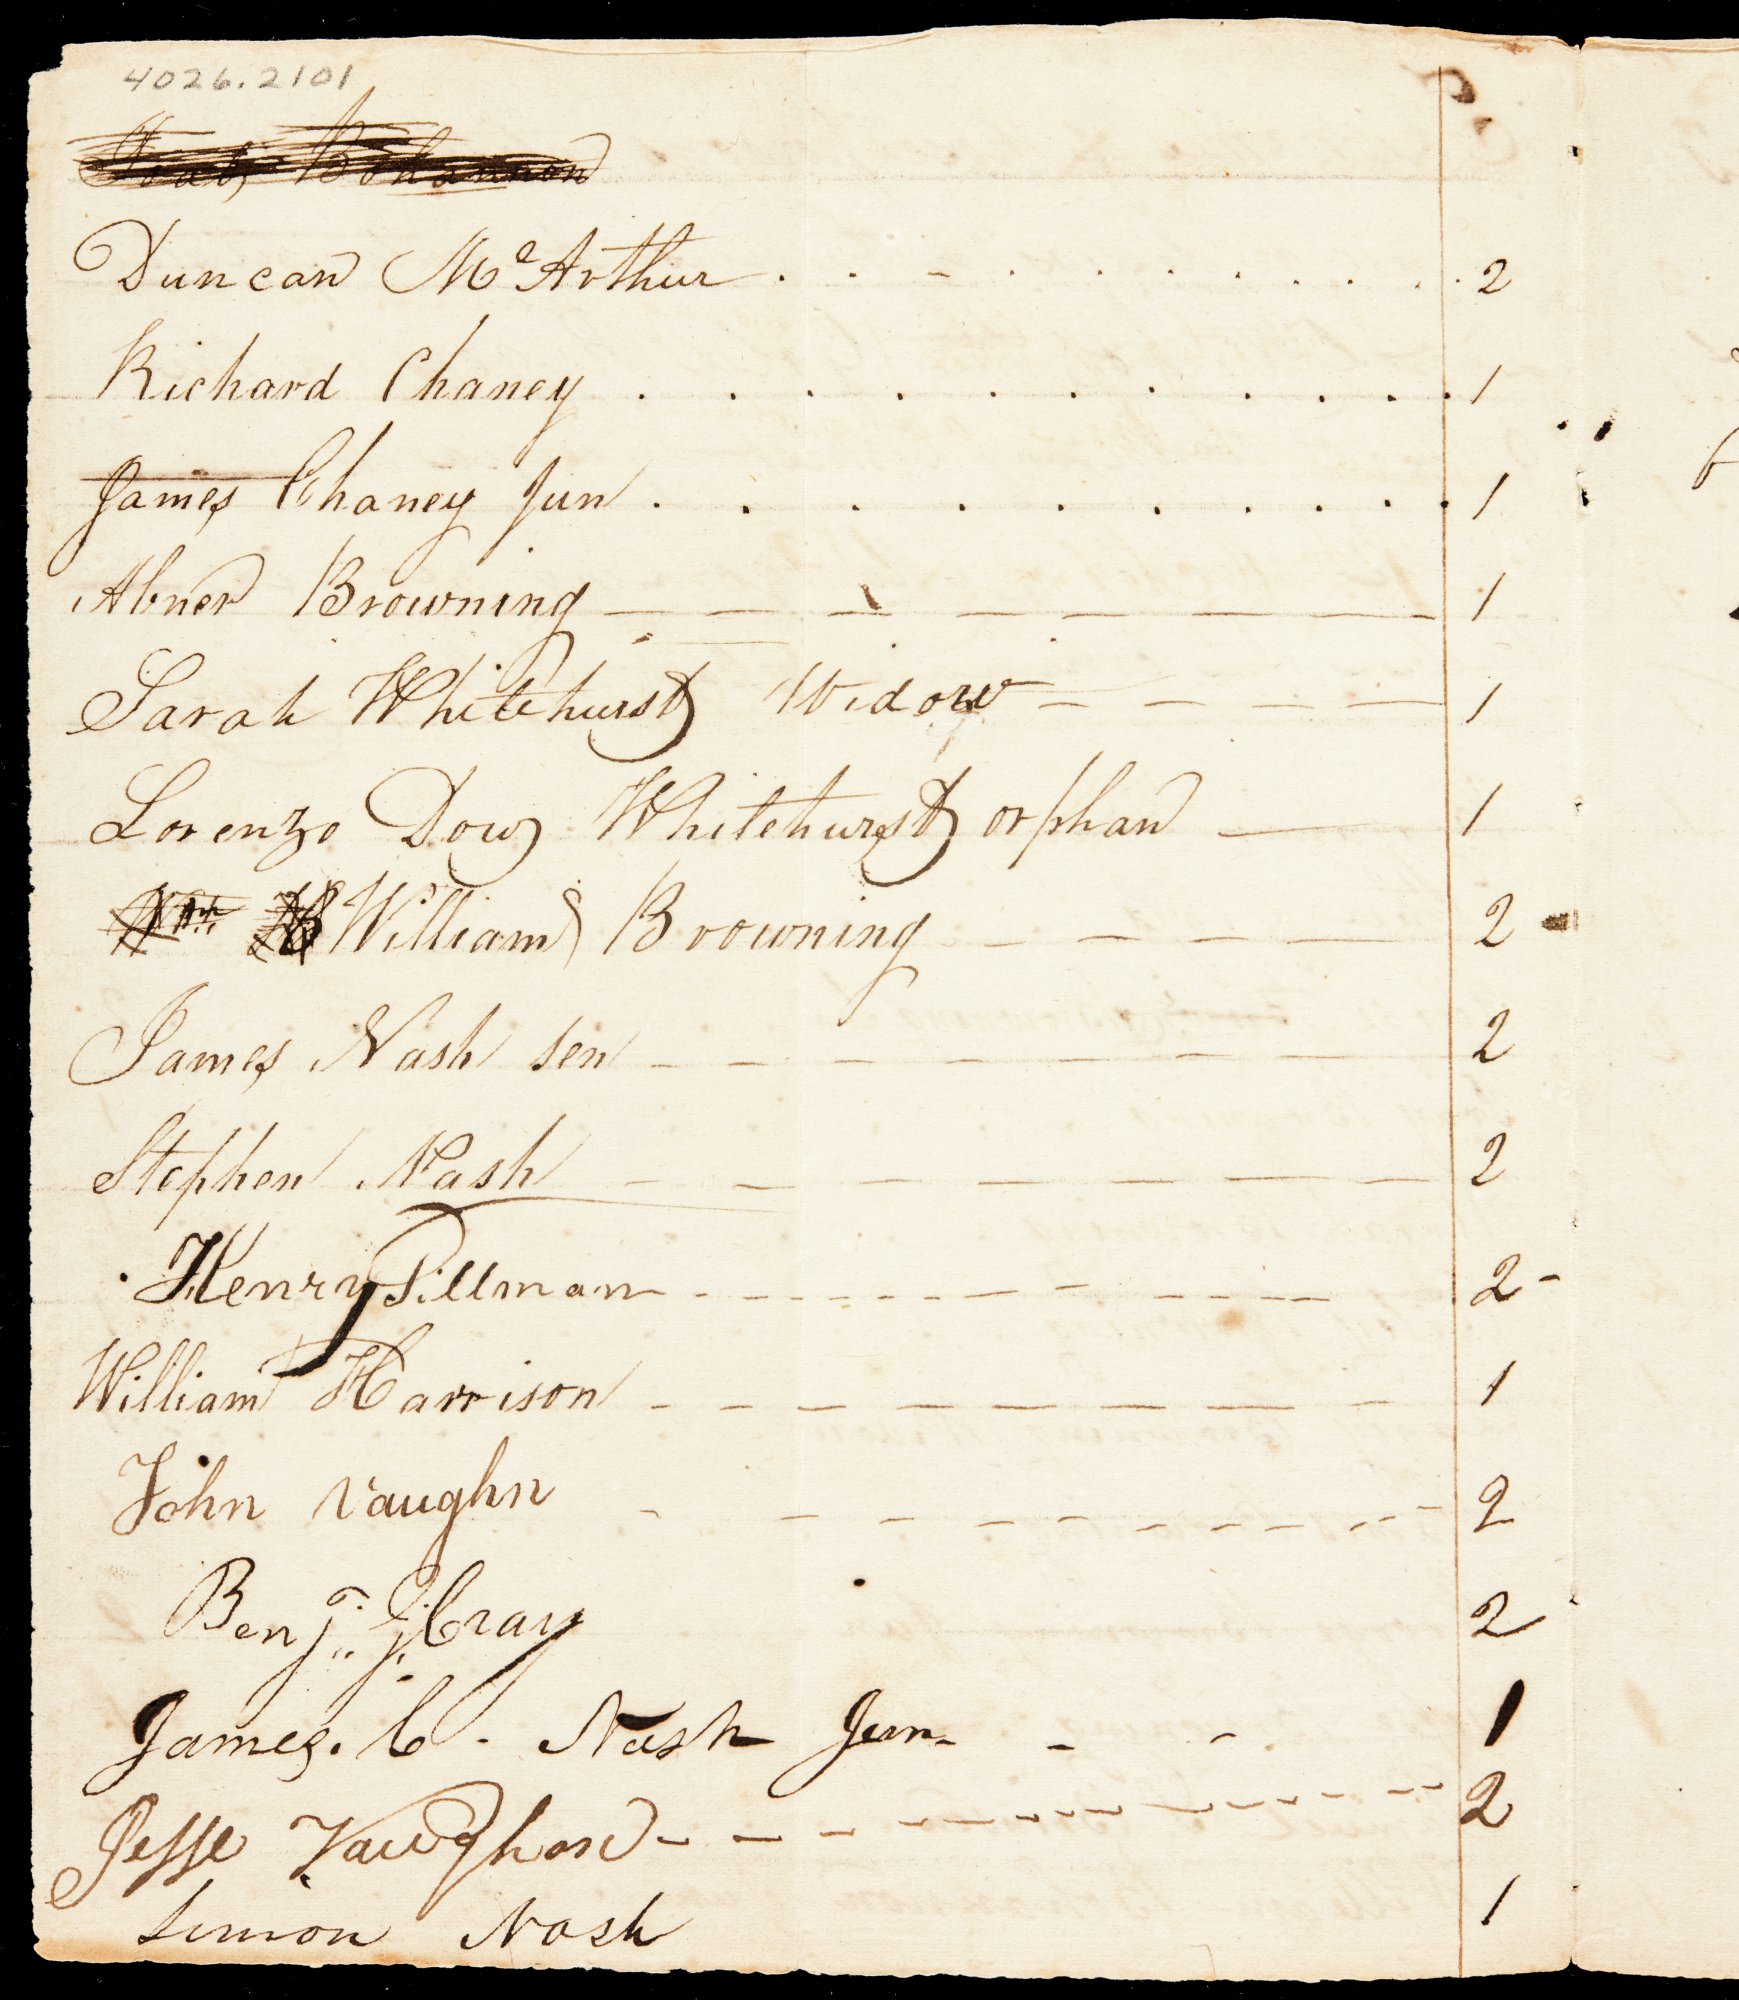 4026.2101
Bohannon
Duncan McArthur 2
Richard Chaney 1
James Chaney Jun 1
Abner Browning 1
Sarah Whitehurst Widow 1
Lorenzo Dow Whitehurst orphan 1
William Browning 2
James Nash Sen 2
Stephen Nash 2
Henry Pillman 2
William Harrison 1
John Vaughn 2
Benj. J. Cray 2
James. C. Nash Jun 1
Jesse Vaughon 2
Simon Nash 1